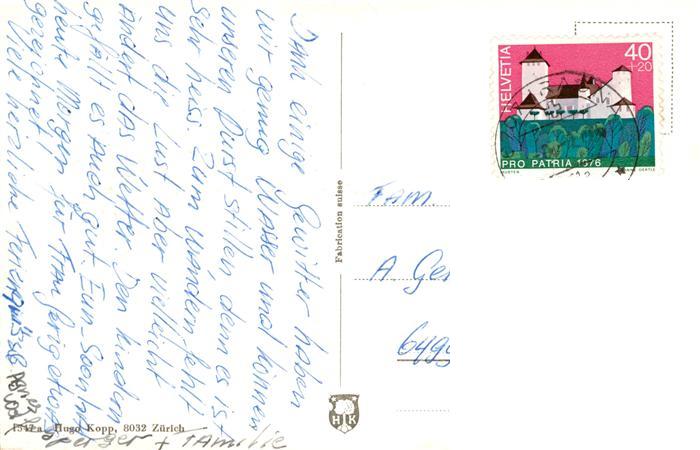 Dank einige Gewitter haben
wir genug Wasser und können
unseren Durst stillen, denn es ist
sehr heiss. Zum wandern fehlt
uns die Lust aber vielleicht
ändert das Wetter. Den Kindern
gefällt es auch gut.
heute Morgen für Frau
gezeichnet,
Viele herzliche Feriengrüsse
+ Familie
1547a Hugo Kopp, 8032 Zürich
Fabrication suisse
HK
HELVETIA
40
+20
PRO PATRIA 1976
Fam.
A. Ger
649